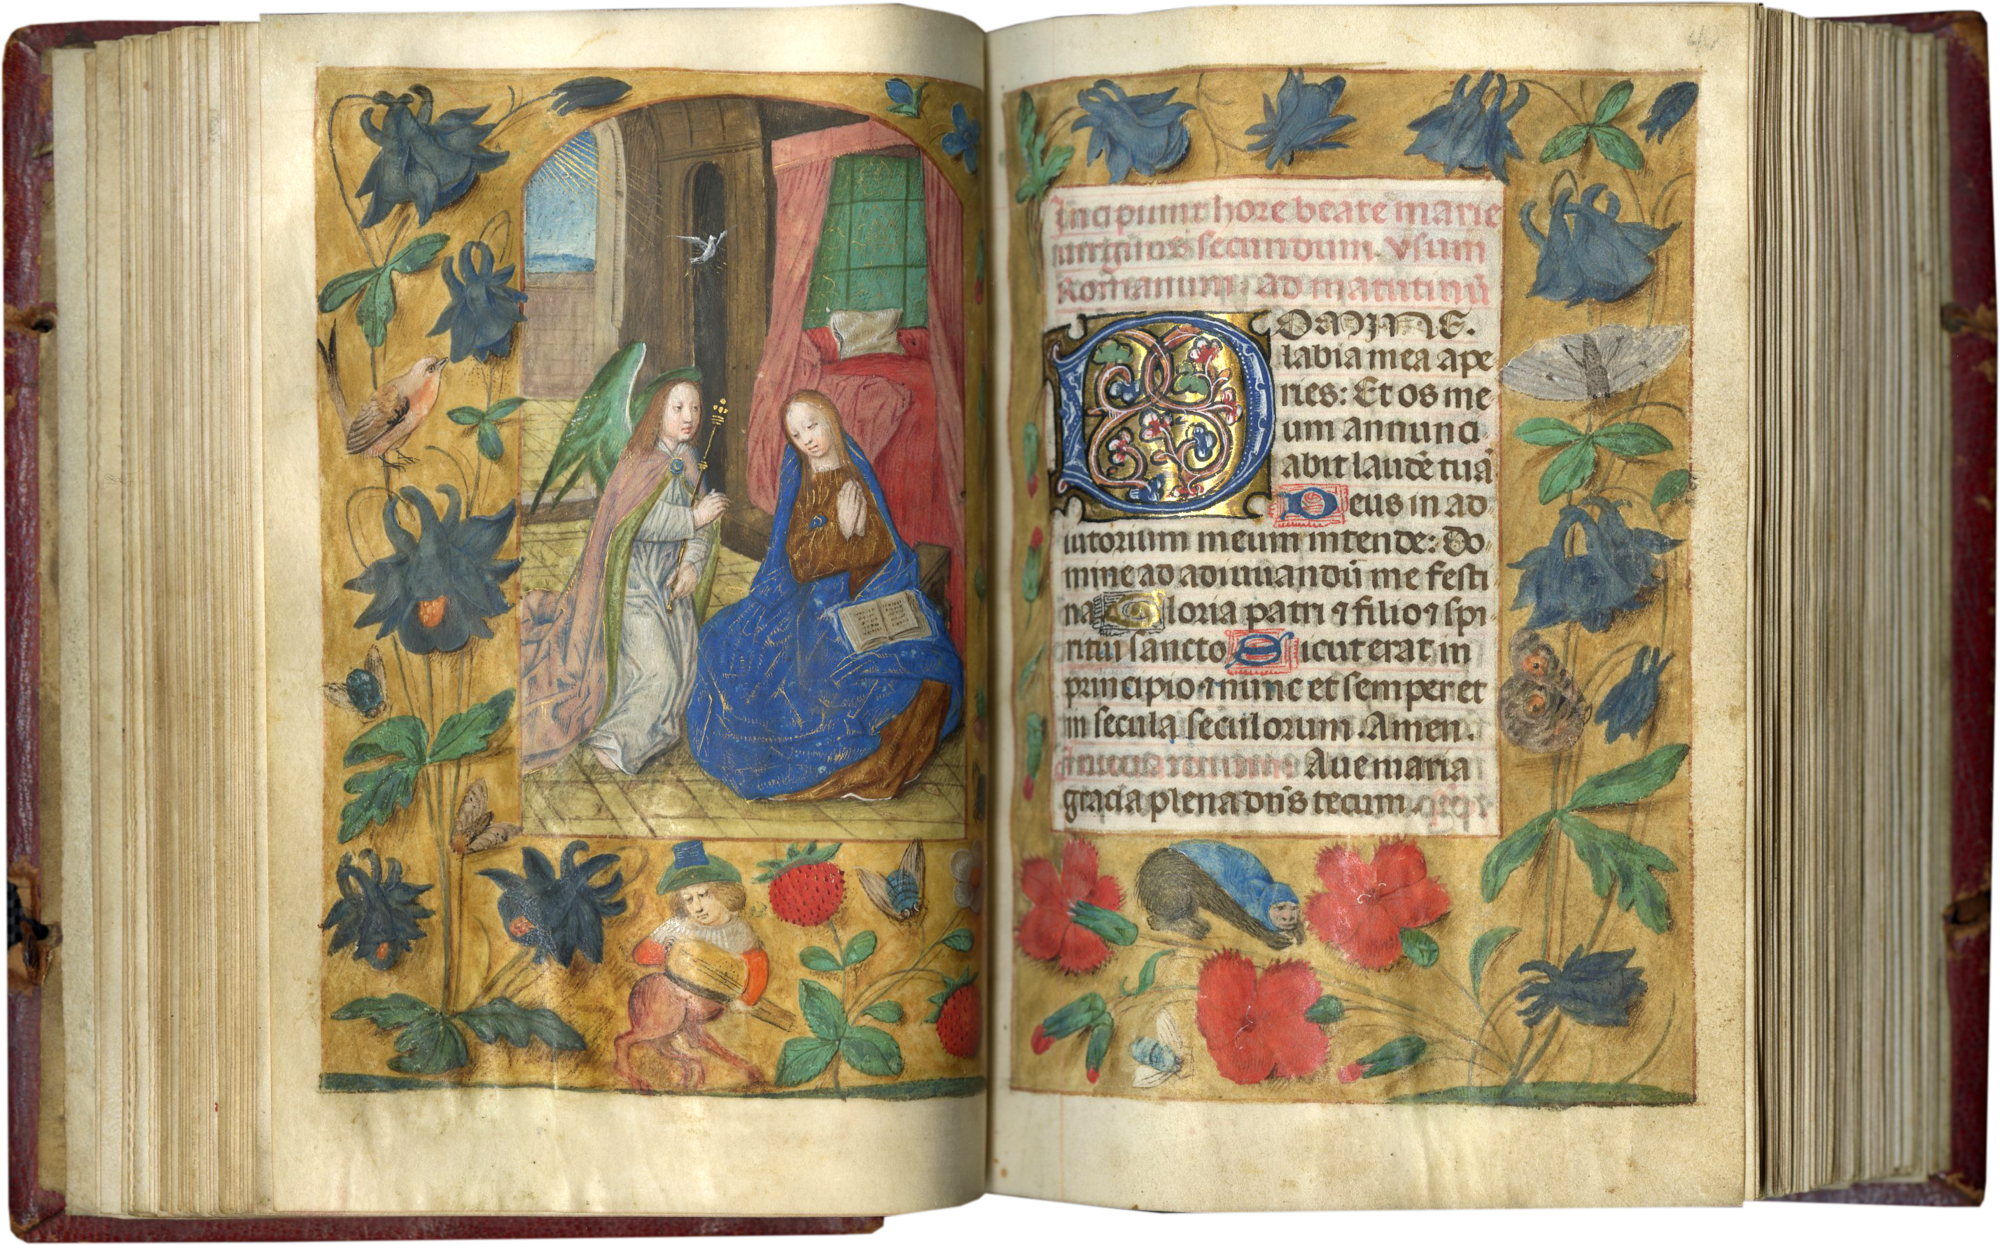 Incipiunt hore beate marie
virginis secundum. vsum
Romanum. ad matutinū
DOMINE.
labia mea ape
ries: Et os me
um annunci
abit laudē tuā
Deus in ad
iutorium meum intende: Do
mine ad adiuuandū me festi
na Gloria patri ⁊ filio ⁊ spi
ritui sancto Sicut erat in
principio ⁊ nunc et semper et
in secula seculorum. Amen.
Aue maria
gracia plena dn̄s tecum.